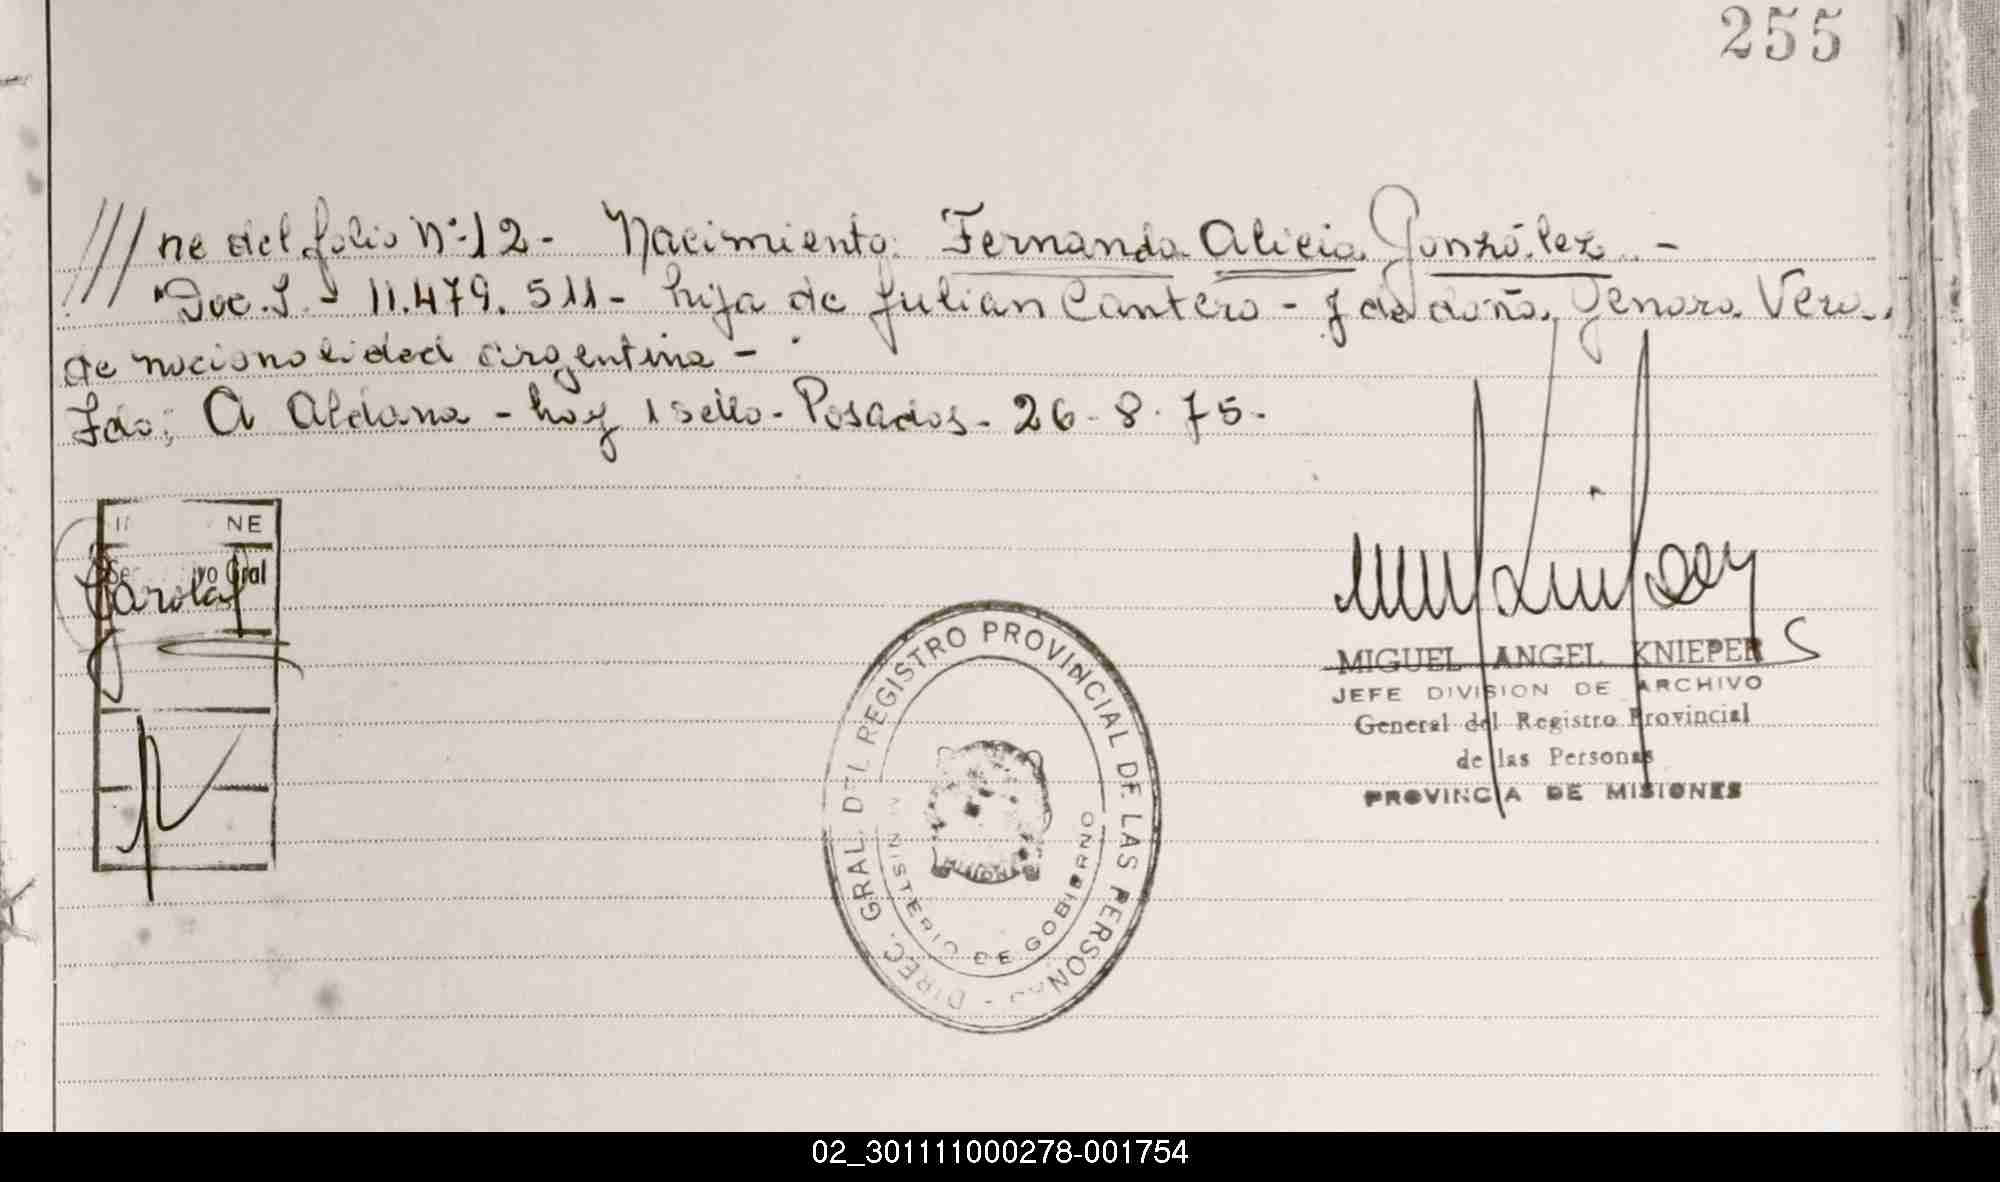 255
/// ne del folio Nº 12 - Nacimiento: Fernanda Alicia González. -
Doc. I. - 11.479.511 - hija de Julian Cantero - y de doña Genara Vera.
de nacionalidad argentina -
Fdo; A Aldana - hay 1 sello - Posadas - 26 - 8 - 75 -
NE
vo Gral
MIGUEL ANGEL KNIEPER
JEFE DIVISION DE ARCHIVO
General del Registro Provincial
de las Personas
PROVINCIA DE MISIONES
DIREC. GRAL. DEL REGISTRO PROVINCIAL DE LAS PERSONAS -
MINISTERIO DE GOBIERNO
02_301111000278-001754